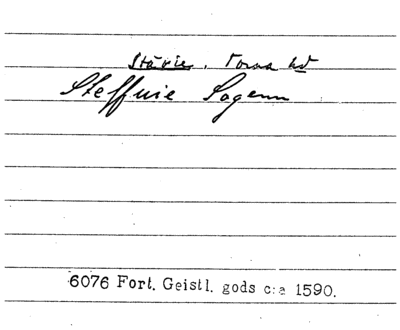 Stävie. Torna hd
Steffuie Sogenn
6076 Fort. Geistl. gods c:a 1590.